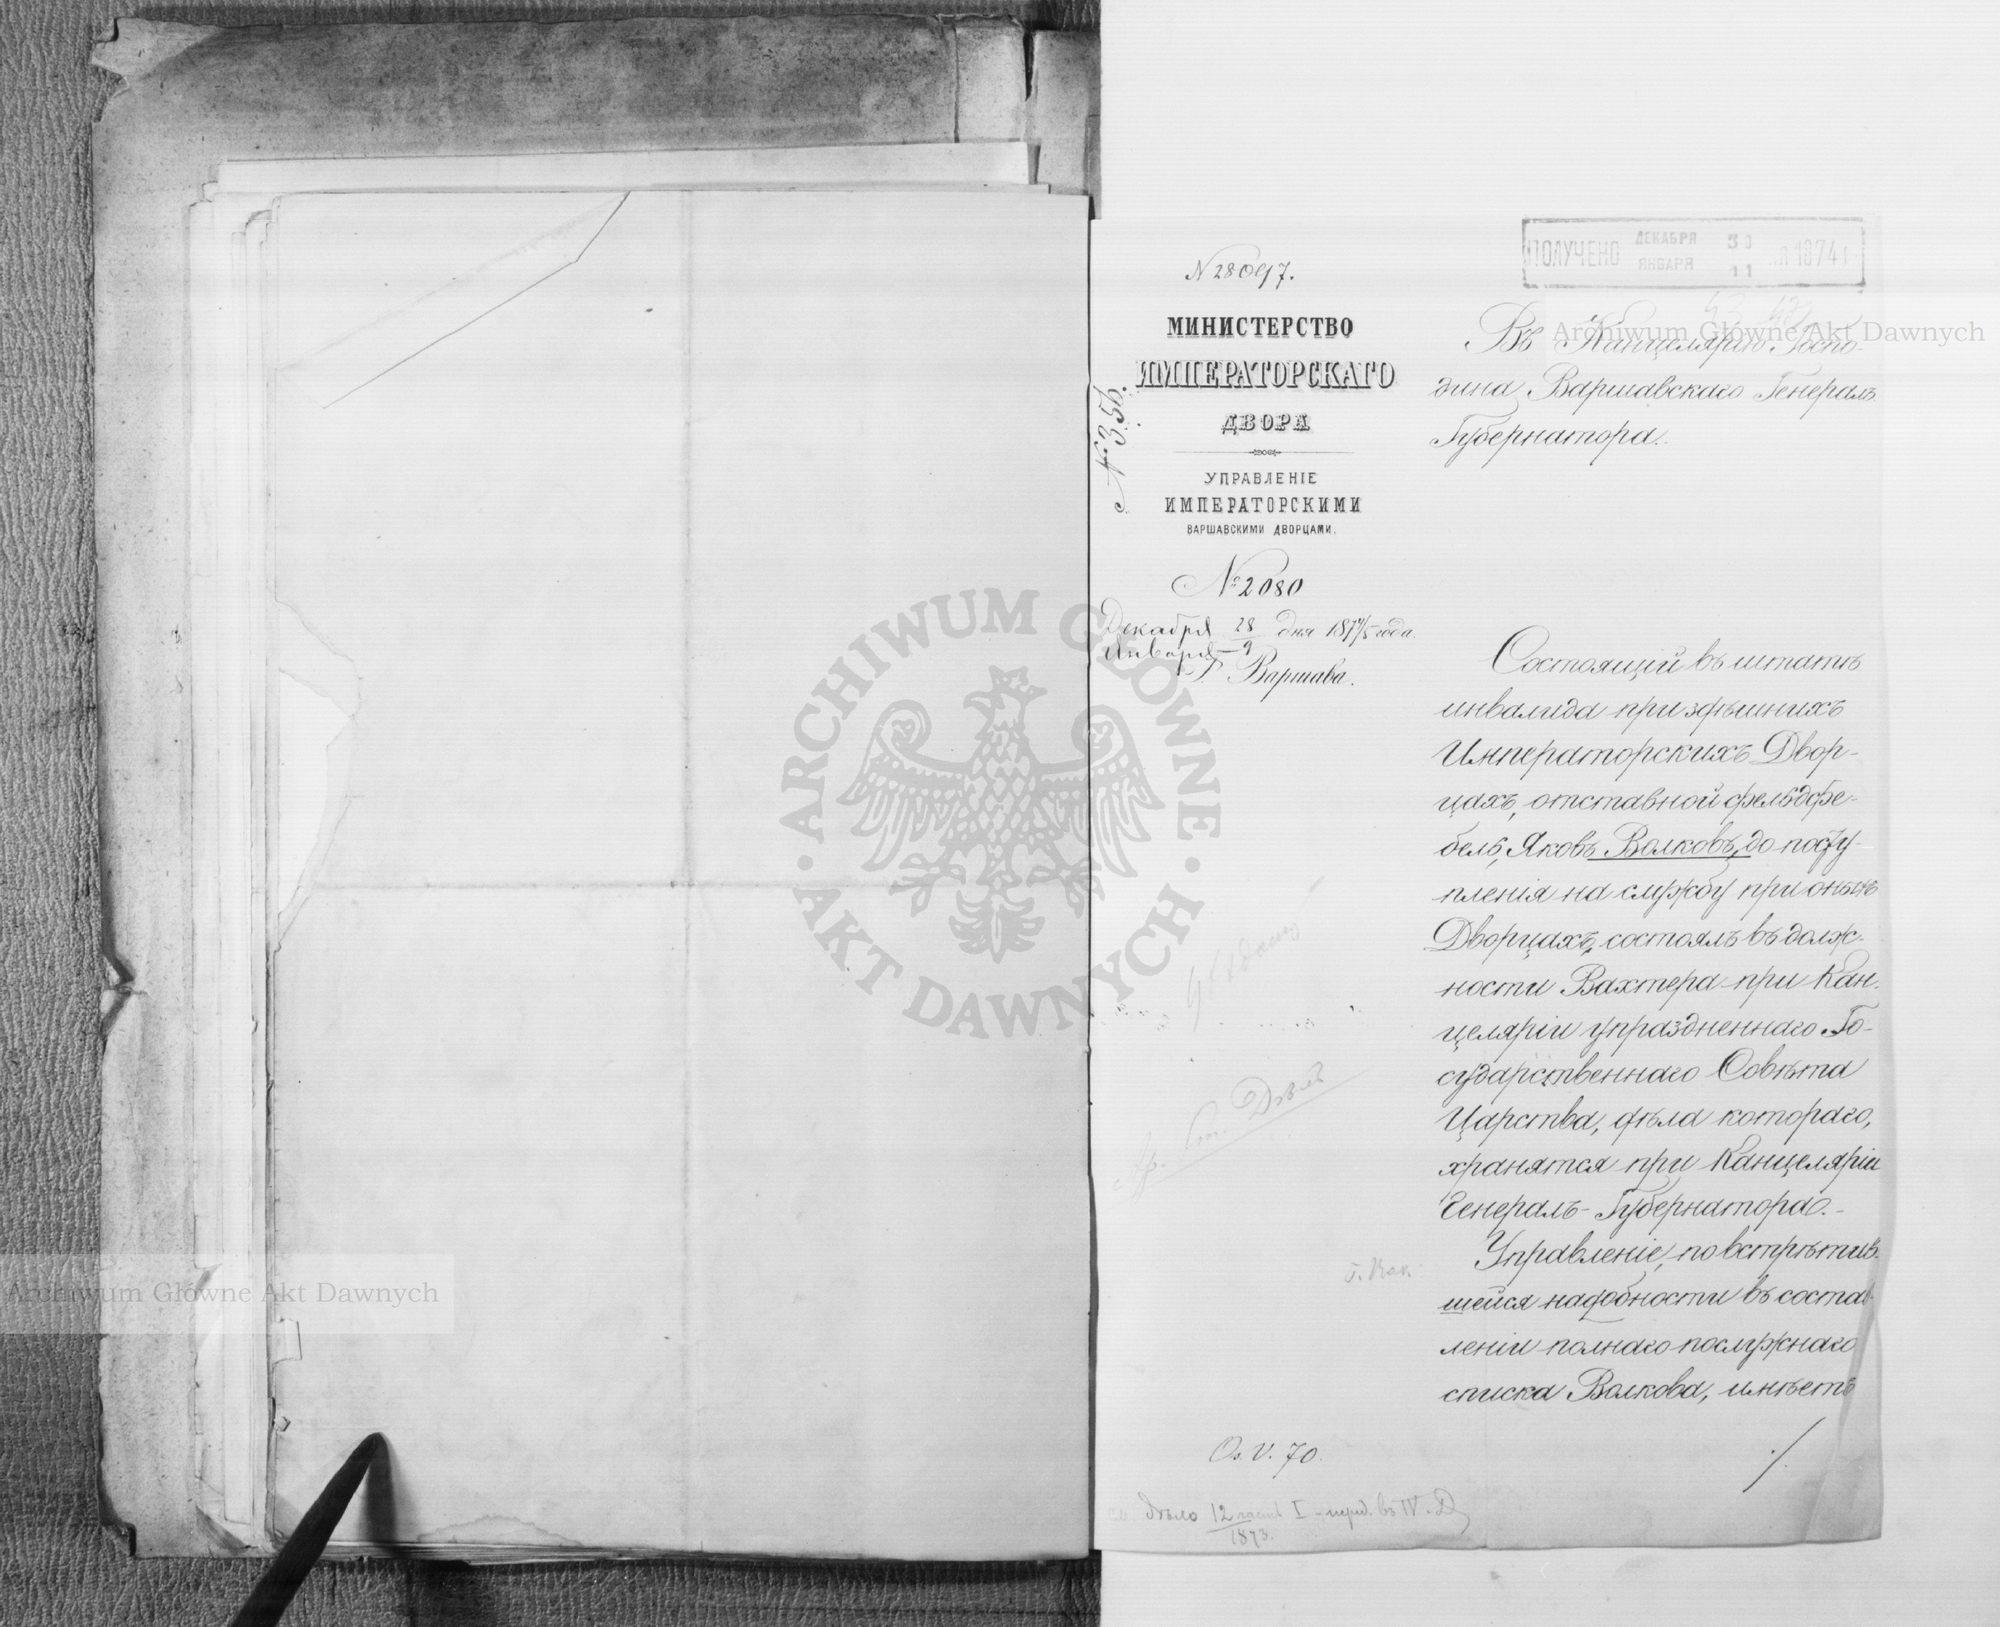 N 28097.
МИНИСТЕРСТВО
ИМПЕРАТОРСКАГО
ДВОРА
УПРАВЛЕНІЕ
ИМПЕРАТОРСКИМИ
ВАРШАВСКИМИ ДВОРЦАМИ.
№ 2080
Декабря 28 дня 1874/5 года.
Января 9
Г. Варшава.
N 356.
ПОЛУЧЕНО ДЕКАБРЯ 30 1874 г
ЯНВАРЯ 11
Въ Канцелярію Госпо-
дина Варшавскаго Генералъ
Губернатора.
Состоящій въ штатѣ
инвалида при здѣшнихъ
Императорскихъ Двор-
цахъ, отставной фельдфе-
бель, Яковъ Волковъ, до посту-
пленія на службу при оныхъ
Дворцахъ, состоялъ въ долж-
ности Вахтера при Кан-
целяріи упраздненнаго Го-
сударственнаго Совѣта
Царства, дѣла котораго,
хранятся при Канцеляріи
Генералъ-Губернатора.-
Управленіе, по встрѣтив-
шейся надобности въ состав-
леніи полнаго послужнаго
списка Волкова, имѣетъ
./.
Оз. V. 70.
Дѣло 12 часть I - перед. въ IV. Д
1873.
ARCHIWUM GŁÓWNE
AKT DAWNYCH
Archiwum Główne Akt Dawnych
Archiwum Główne Akt Dawnych